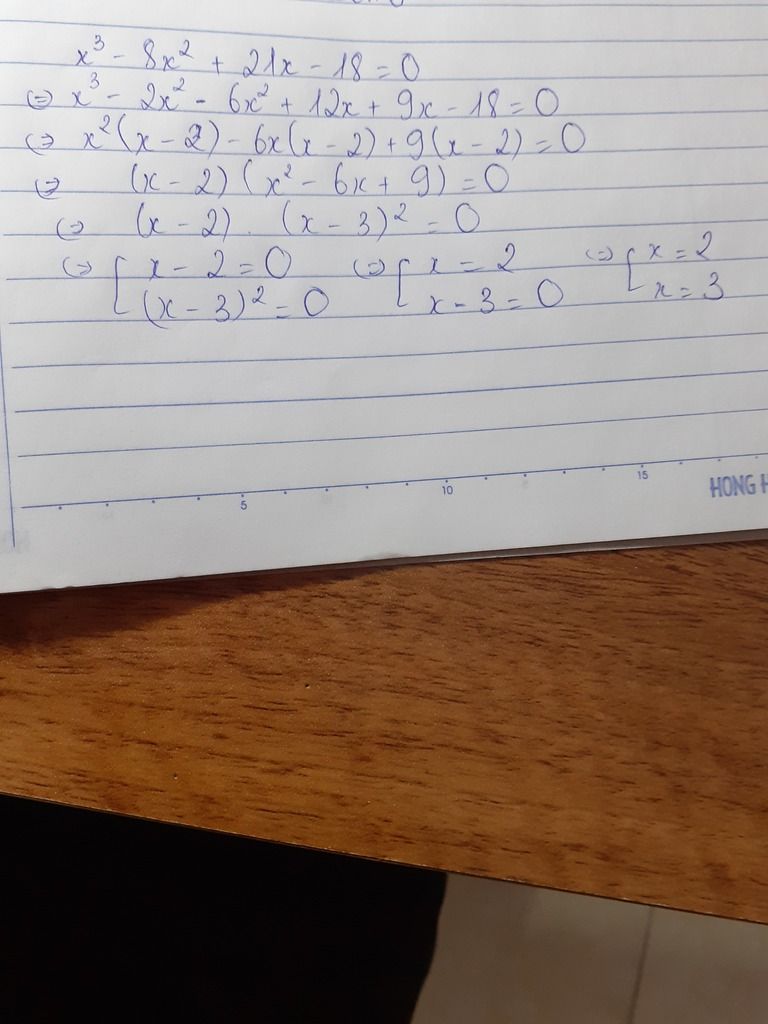 x³ - 8x² + 21x - 18 = 0
⇔ x³ - 2x² - 6x² + 12x + 9x - 18 = 0
⇔ x²(x - 2) - 6x(x - 2) + 9(x - 2) = 0
⇔ (x - 2)(x² - 6x + 9) = 0
⇔ (x - 2) . (x - 3)² = 0
⇔ [ x - 2 = 0 ⇔ [ x = 2 ⇔ [ x = 2
(x - 3)² = 0 x - 3 = 0 x = 3
5 10 15
HONG H